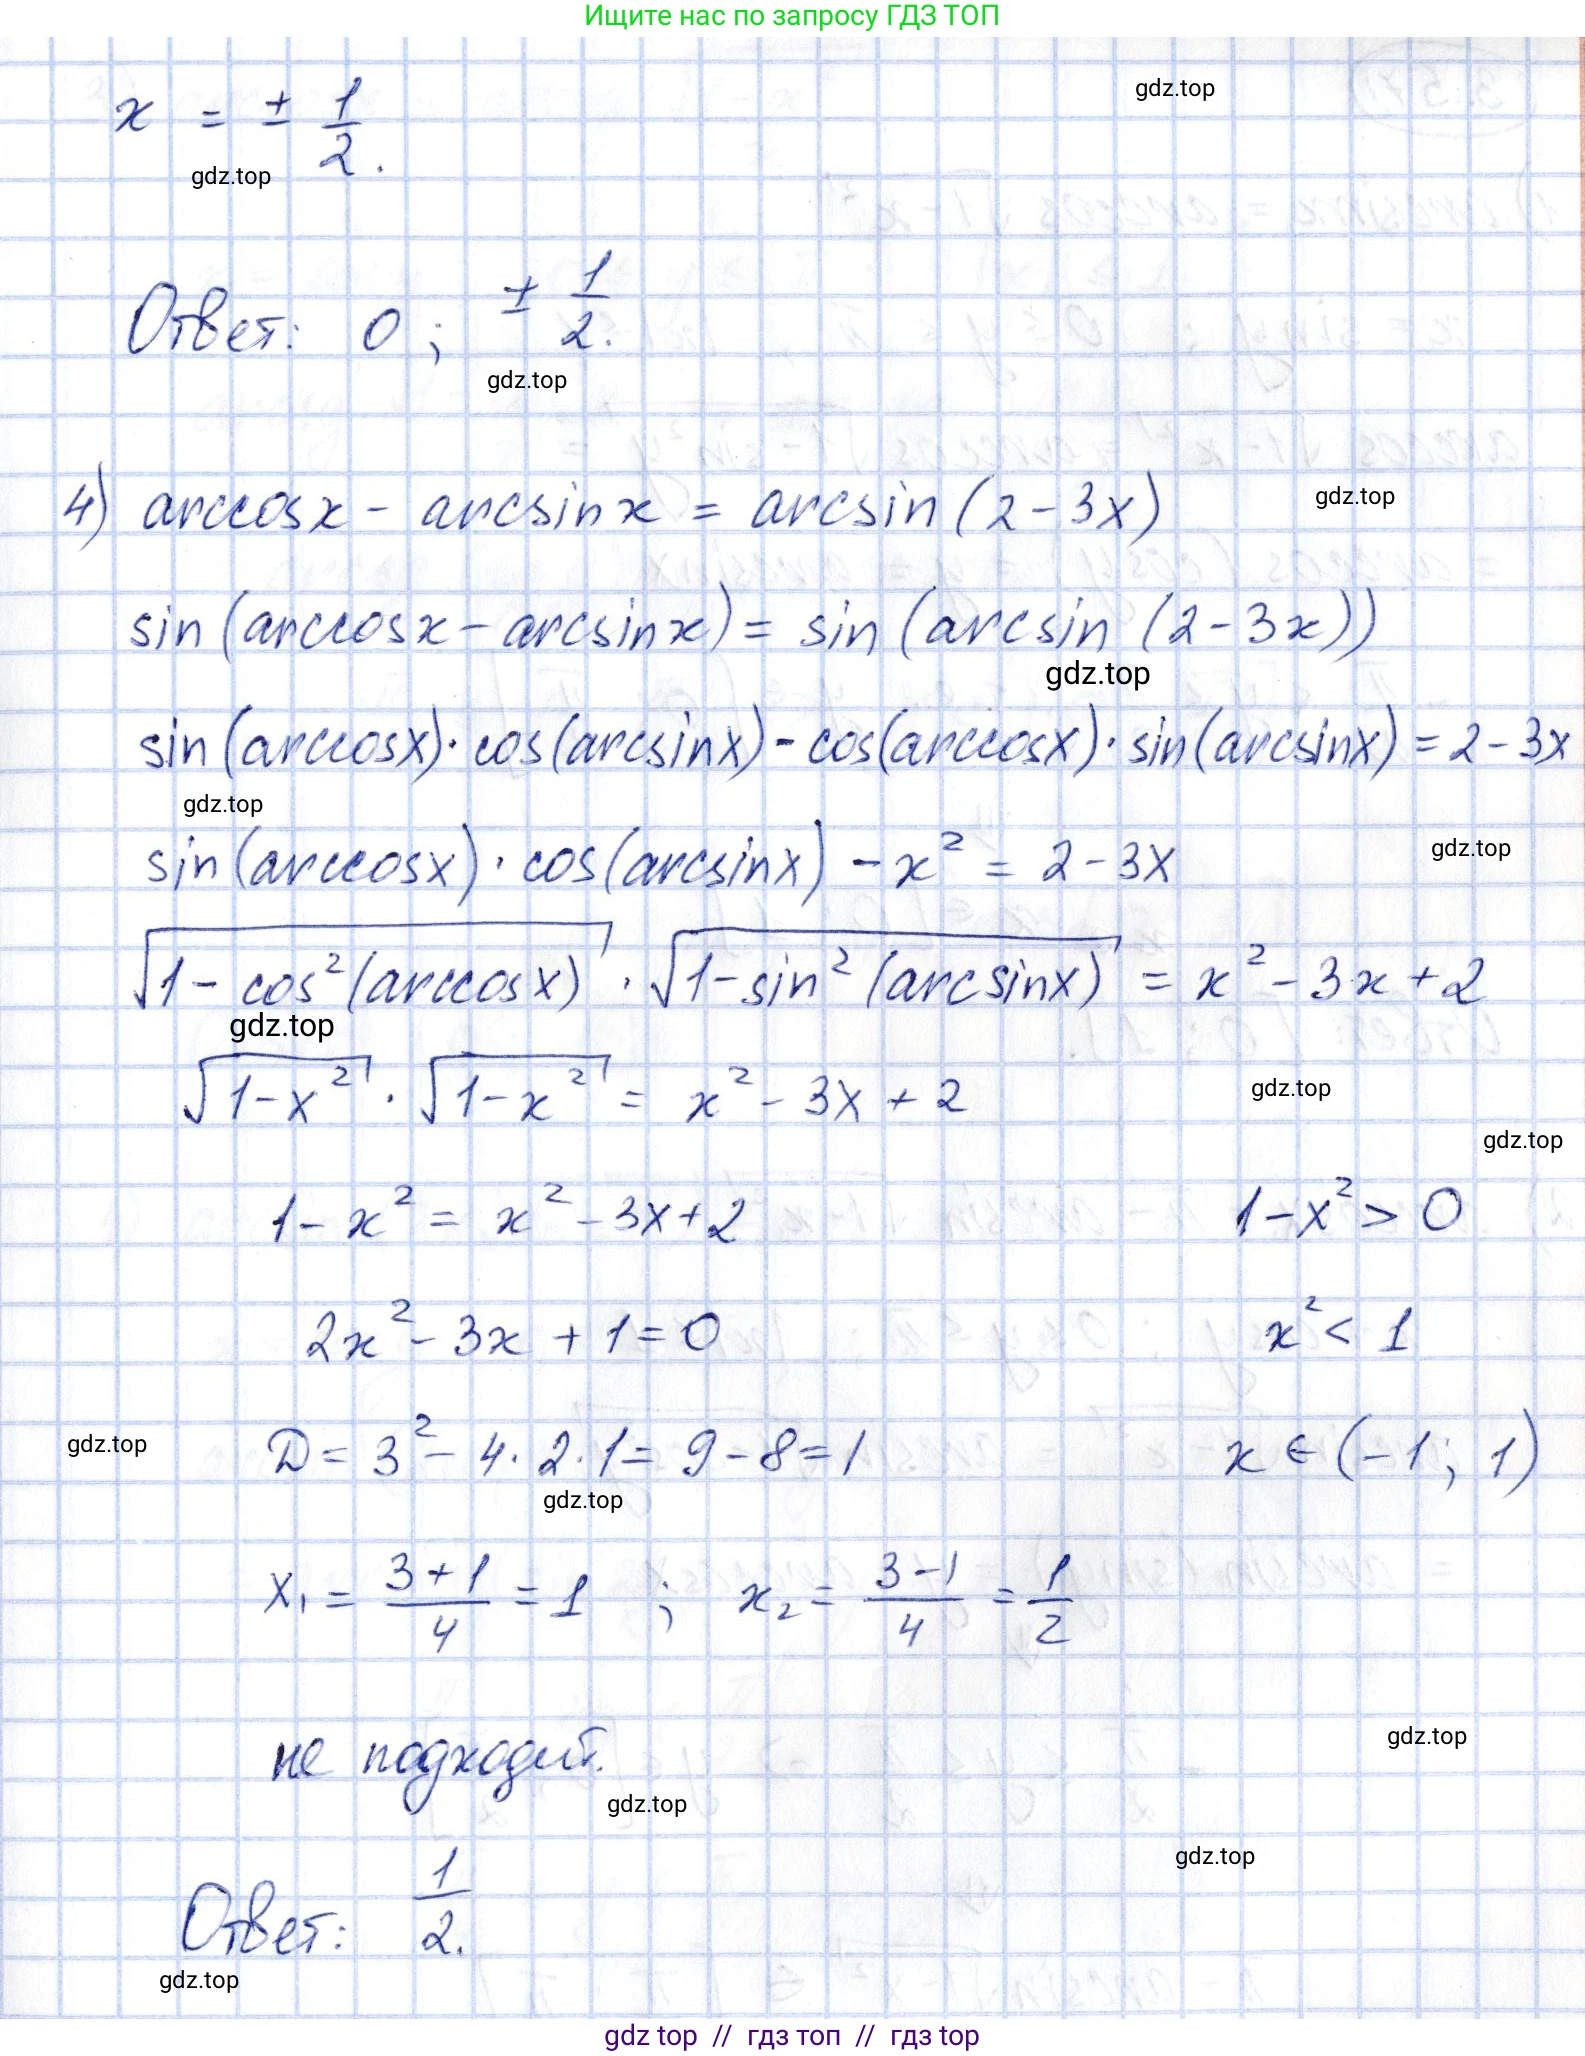 Ищите нас по запросу ГДЗ ТОП
gdz.top
x = ± 1/2.
gdz.top
Ответ: 0; ± 1/2.
gdz.top
4) arccosx - arcsinx = arcsin(2-3x)
gdz.top
sin(arccosx - arcsinx) = sin(arcsin(2-3x))
gdz.top
sin(arccosx)·cos(arcsinx) - cos(arccosx)·sin(arcsinx) = 2-3x
gdz.top
sin(arccosx)·cos(arcsinx) - x² = 2-3x
gdz.top
√(1-cos²(arccosx)) · √(1-sin²(arcsinx)) = x²-3x+2
gdz.top
√(1-x²) · √(1-x²) = x²-3x+2
gdz.top
gdz.top
1-x² = x²-3x+2 1-x² > 0
2x²-3x+1=0 x² < 1
gdz.top
D = 3²-4·2·1 = 9-8 = 1 x ∈ (-1; 1)
gdz.top
x₁ = (3+1)/4 = 1 ; x₂ = (3-1)/4 = 1/2
не подходит.
gdz.top
gdz.top
gdz.top
Ответ: 1/2.
gdz.top
gdz top // гдз топ // gdz top